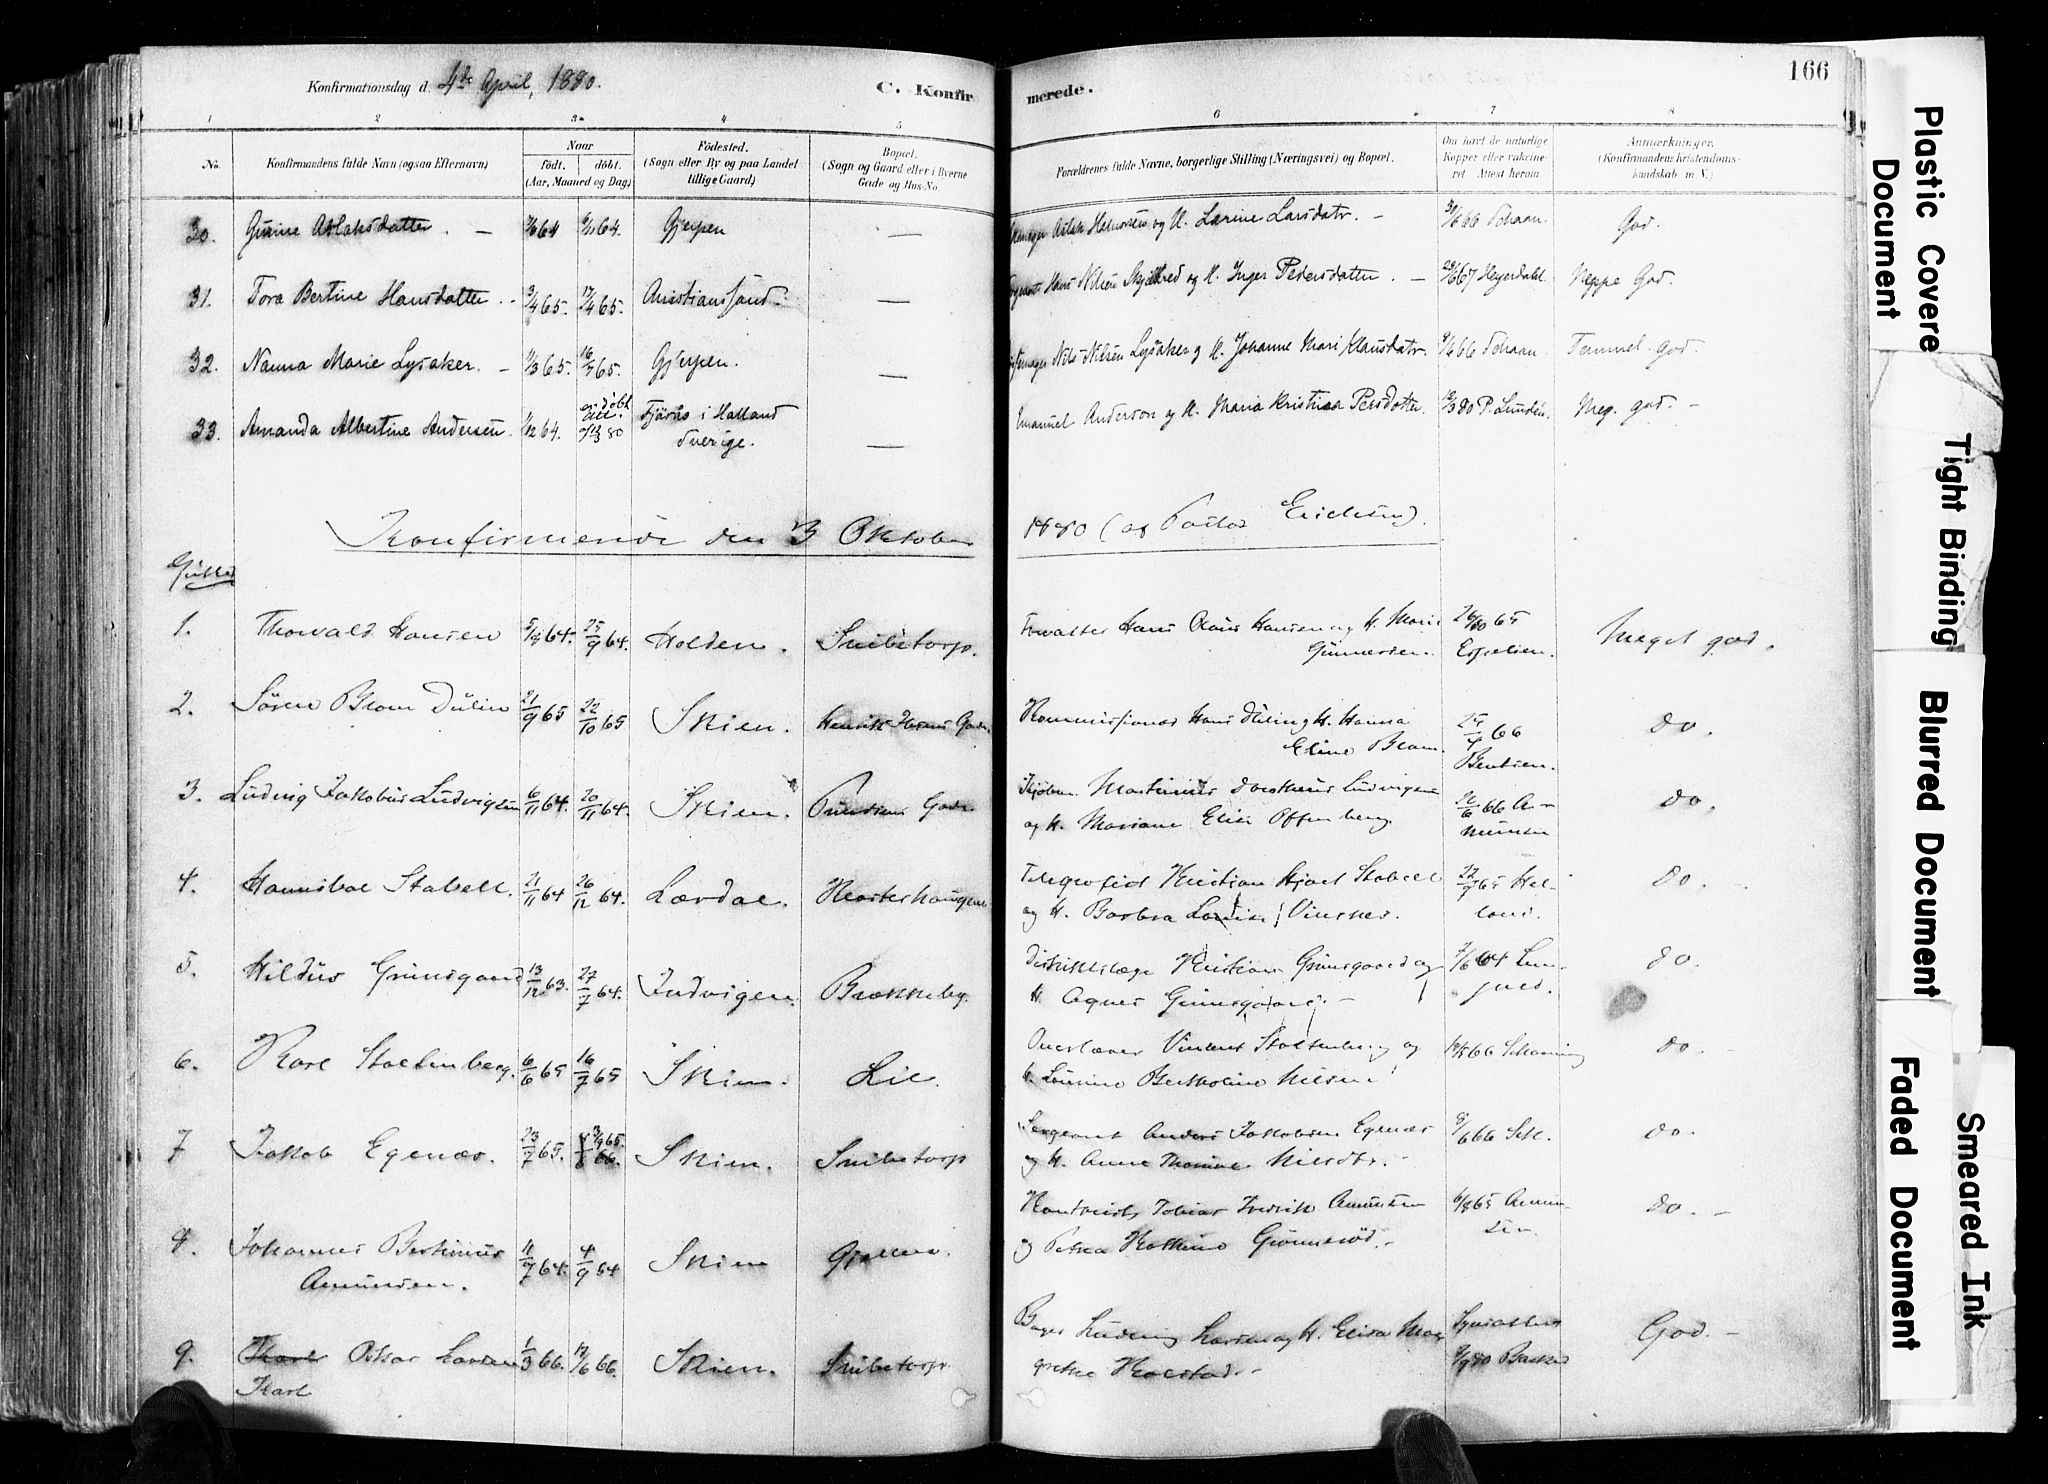 166
Konfirmationsdag d. 4de April, 1880.
C. Konfirmerede.
1 2 3 4 5 6 7 8
No.
Konfirmandens fulde Navn (ogsaa Efternavn)
Naar
født. døbt.
(Aar, Maaned og Dag)
Fødested.
(Sogn eller By og paa Landet
tillige Gaard)
Bopæl.
(Sogn og Gaard eller i Byerne
Gade og Hus-No.
Forældrenes fulde Navne, borgerlige Stilling (Næringsvei) og Bopæl.
Om havt de naturlige
Kopper eller vakcine-
ret. Attest herom
Anmærkninger.
(Konfirmandens Kristendoms-
kundskab m. V.)
30. Gurine Aslaksdatter. — 64 64. Gjerpen — Aslak Halvorsen og H. Larine Larsdatr. — 66 Schaan. God.
31. Tora Bertine Hansdatter 3/4 65. 17/4 65. Christiansand. — Hans Nilsen og H. Inger Pedersdatter. — 29/6 67 Heyerdahl. Neppe God.
32. Nanna Marie Lysaker. — 1/3 65. 16/7 65. Gjerpen. — Nils Nilsen Lysaker og H. Johanne Mari Klausdatr. 9/6 66 Schaan. Temmel. god.
33. Amanda Albertine Andersen. 1/12 64. døbt 80 Fjärås i Halland
Sverige. — Emanuel Anderson og H. Maria Kristina Persdotter 80 P. Lundén. Meg. god. —
Konfirmerede den 3 Oktober 1880 (af Pastor Erichsen).
Gutter
1. Thorvald Hansen 5/9 64. 25/9 64. Holden. Snibetorp. Forvalter Hans Olaus Hansen og H. Marie
Gunnersen. 65
Espelien. Meget god.
2. Søren Blom Dülin 21/9 65 22/10 65 Skien. Henrik Ibsens Gade. Kommissionær Hans Düling H. Hanna
Eline Blom. 66
Bentsen. do.
3. Ludvig Jakobus Ludvigsen 6/11 64. 20/11 64. Skien. Gade Martinius Dorotheus Ludvigsen
og H. Mariane Elise Offenberg. 66 A-
munsen do.
4. Hannibal Stabell. 21/11 64 26/12 64. Lærdal. Telegrafist Kristian Hjort Stabell
og H. Barbra Louise Vinsnes. 65 do.
5. Hildus Grimsgaard 13/12 63. 27/7 64. Indvigen. Brekkeby. Distriktslæge Kristian Grimsgaard og
H. Agnes Grimsgaard. — 64 do.
6. Karl Stoltenberg. 6/6 65 16/7 65 Skien. Lie. Overlærer Vincent Stoltenberg og
H. Lovise Bertholine Nilsen 66 do. —
7 Jakob Egenæs. 23/7 65. 3/9 65. Skien. Snibetorp Sergeant Anders Jakobsen Egenæs
og H. Anne Thomine Nilsdtr. — 66 Sch. do.
8. Johannes Bertinius
Amundsen. 11/7 64. 4/9 64 Skien Tobias Fredrik Amundsen
og Petra Kathrine Grønnerød. — 65 Amun-
sen. do. —
9. Karl Oskar Larsen
Karl 1/3 66. 17/6 66. Skien. Snibetorp. Bager Ludvig Larsen og H. Elisa Mar
grethe Kolstad. — 80 God. —
Plastic Covere
Document
Tight Binding
Blurred Document
Faded Document
Smeared Ink